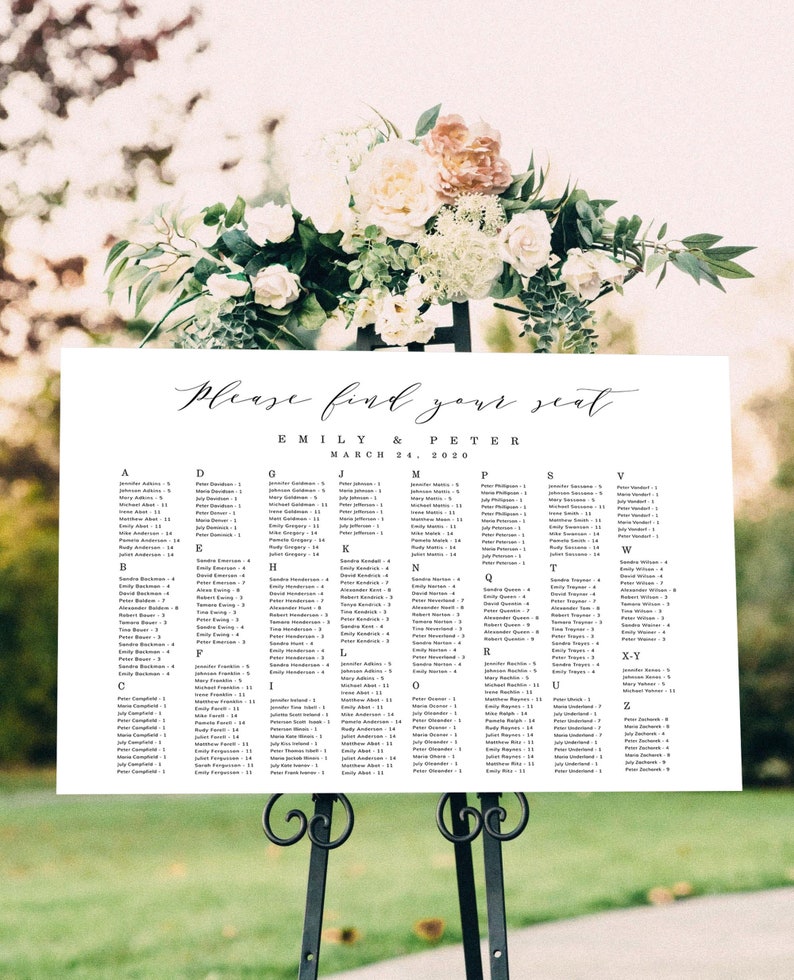 Please find your seat
EMILY & PETER
MARCH 24, 2020
A
Jennifer Adkins - 5
Johnson Adkins - 5
Mary Adkins - 5
Michael Abot - 11
Irene Abot - 11
Matthew Abot - 11
Emily Abot - 11
Mike Anderson - 14
Pamela Anderson - 14
Rudy Anderson - 14
Juliet Anderson - 14
B
Sandra Backman - 4
Emily Backman - 4
David Backman - 4
Peter Baldem - 7
Alexander Baldem - 8
Robert Bauer - 3
Tamara Bauer - 3
Tina Bauer - 3
Peter Bauer - 3
Sandra Backman - 4
Emily Backman - 4
Peter Bauer - 3
Sandra Backman - 4
Emily Backman - 4
C
Peter Campfield - 1
Maria Campfield - 1
July Campfield - 1
Peter Campfield - 1
Maria Campfield - 1
July Campfield - 1
Peter Campfield - 1
Maria Campfield - 1
July Campfield - 1
Peter Campfield - 1
D
Peter Davidson - 1
Maria Davidson - 1
July Davidson - 1
Peter Denver - 1
Maria Denver - 1
July Dominick - 1
Peter Dominick - 1
E
Sandra Emerson - 4
Emily Emerson - 4
David Emerson - 4
Peter Emerson - 7
Alexa Ewing - 8
Robert Ewing - 3
Tamara Ewing - 3
Tina Ewing - 3
Peter Ewing - 3
Sandra Ewing - 4
Emily Ewing - 4
Peter Emerson - 3
F
Jennifer Franklin - 5
Johnson Franklin - 5
Mary Franklin - 5
Michael Franklin - 11
Irene Franklin - 11
Matthew Franklin - 11
Emily Farell - 11
Mike Farell - 14
Pamela Farell - 14
Rudy Farell - 14
Juliet Farell - 14
Matthew Farell - 11
Emily Fergusson - 11
Sarah Fergusson - 11
Matthew Fergusson - 11
Emily Fergusson - 11
G
Jennifer Goldman - 5
Johnson Goldman - 5
Mary Goldman - 5
Michael Goldman - 11
Irene Goldman - 11
Matt Goldman - 11
Emily Gregory - 11
Mike Gregory - 14
Pamela Gregory - 14
Rudy Gregory - 14
Juliet Gregory - 14
H
Sandra Henderson - 4
Emily Henderson - 4
David Henderson - 4
Peter Henderson - 7
Alexander Hunt - 8
Robert Henderson - 3
Tamara Henderson - 3
Tina Henderson - 3
Peter Henderson - 3
Sandra Hunt - 4
Emily Hunt - 4
Peter Henderson - 3
Sandra Henderson - 4
Emily Henderson - 4
I
Jennifer Ireland - 1
Jennifer Tina Isbell - 1
Julietta Scott Ireland - 1
Peterson Scott Isaak - 1
Peterson Illinois - 1
Maria Kate Illinois - 1
July Kiss Ireland - 1
Peter Thomas Isbell - 1
Maria Jack Illinois - 1
July Kate Ivanov - 1
Peter Frank Ivanov - 1
J
Peter Johnson - 1
Maria Johnson - 1
July Johnson - 1
Peter Jefferson - 1
Peter Jefferson - 1
Maria Jefferson - 1
July Jefferson - 1
Peter Jefferson - 1
K
Sandra Kendall - 4
Emily Kendrick - 4
David Kendrick - 4
Peter Kendrick - 7
Alexander Kent - 8
Robert Kendrick - 3
Tanya Kendrick - 3
Tina Kendrick - 3
Peter Kendrick - 3
Sandra Kent - 4
Emily Kendrick - 4
Peter Kendrick - 3
L
Jennifer Adkins - 5
Johnson Adkins - 5
Mary Adkins - 5
Michael Abot - 11
Irene Abot - 11
Matthew Abot - 11
Emily Abot - 11
Mike Anderson - 14
Pamela Anderson - 14
Rudy Anderson - 14
Juliet Anderson - 14
Matthew Abot - 11
Emily Abot - 11
Emily Abot - 11
Matthew Abot - 11
Emily Abot - 11
M
Jennifer Mattis - 5
Johnson Mattis - 5
Mary Mattis - 5
Michael Mattis - 11
Irene Mattis - 11
Matthew Moon - 11
Emily Mattis - 11
Mike Malek - 14
Pamela Malek - 14
Rudy Mattis - 14
Juliet Mattis - 14
N
Sandra Norton - 4
Emily Norton - 4
David Norton - 4
Peter Neverland - 7
Alexander Noell - 8
Robert Norton - 3
Tamara Norton - 3
Tina Neverland - 3
Peter Neverland - 3
Sandra Norton - 4
Emily Norton - 4
Peter Neverland - 3
Sandra Norton - 4
O
Peter Oconor - 1
Maria Oconor - 1
July Oconor - 1
Peter Oconor - 1
Maria Oconor - 1
July Oleander - 1
Peter Oleander - 1
Maria Ohara - 1
July Oleander - 1
Peter Oleander - 1
P
Peter Phillipson - 1
Maria Phillipson - 1
July Phillipson - 1
Peter Phillipson - 1
Maria Phillipson - 1
July Peterson - 1
Peter Peterson - 1
Maria Peterson - 1
July Peterson - 1
Peter Peterson - 1
Maria Peterson - 1
July Peterson - 1
Peter Peterson - 1
Q
Sandra Queen - 4
Emily Queen - 4
David Quentin - 4
Peter Quentin - 7
Alexander Queen - 8
Robert Queen - 9
Alexander Queen - 8
Robert Quentin - 9
R
Jennifer Rachlin - 5
Johnson Rachlin - 5
Mary Rachlin - 5
Michael Rachlin - 11
Irene Rachlin - 11
Matthew Raynes - 11
Emily Raynes - 11
Mike Ralph - 14
Pamela Ralph - 14
Rudy Raynes - 14
Juliet Raynes - 14
Matthew Ritz - 11
Emily Raynes - 11
Emily Raynes - 11
Matthew Ritz - 11
Emily Ritz - 11
S
Jennifer Sassano - 5
Johnson Sassano - 5
Mary Sassano - 5
Michael Smith - 11
Irene Smith - 11
Matthew Smith - 11
Emily Smith - 11
Mike Sassano - 14
Pamela Sassano - 14
Rudy Sassano - 14
Juliet Sassano - 14
T
Sandra Traynor - 4
Emily Traynor - 4
David Traynor - 4
Peter Traynor - 7
Alexander Tam - 8
Robert Traynor - 3
Tamara Traynor - 3
Tina Trayes - 3
Peter Trayes - 3
Sandra Trayes - 4
Emily Trayes - 4
Peter Trayes - 3
Sandra Trayes - 4
U
Peter Uhnick - 1
Maria Underland - 7
July Underland - 7
Peter Underland - 7
Maria Underland - 7
July Underland - 1
Peter Underland - 1
Maria Underland - 1
July Underland - 1
Peter Underland - 1
V
Peter Vandorf - 1
Maria Vandorf - 1
July Vandorf - 1
Peter Vandorf - 1
Maria Vandorf - 1
July Vandorf - 1
Peter Vandorf - 1
W
Sandra Wilson - 4
Emily Wilson - 4
David Wilson - 4
Peter Wilson - 7
Alexander Wilson - 8
Robert Wilson - 3
Tamara Wilson - 3
Tina Wilson - 3
Peter Wilson - 3
Sandra Wainer - 4
Emily Wainer - 4
Peter Wainer - 3
X-Y
Jennifer Xenos - 5
Johnson Xenos - 5
Mary Yahner - 5
Michael Yahner - 11
Z
Peter Zachorek - 8
Maria Zachorek - 8
July Zachorek - 4
Peter Zachorek - 4
Maria Zachorek - 4
Peter Zachorek - 9
Maria Zachorek - 9
July Zachorek - 9
Peter Zachorek - 9